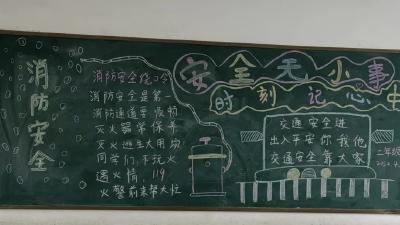 消防安全
消防安全绕口令
消防安全是第一
消防通道要顺畅
灭火器常保养
灭火逃生大用场
同学们，不玩火
遇火情，119
火警前来帮大忙
安全无小事
时刻记心中
交通安全进
出入平安你我他
交通安全靠大家
二年级